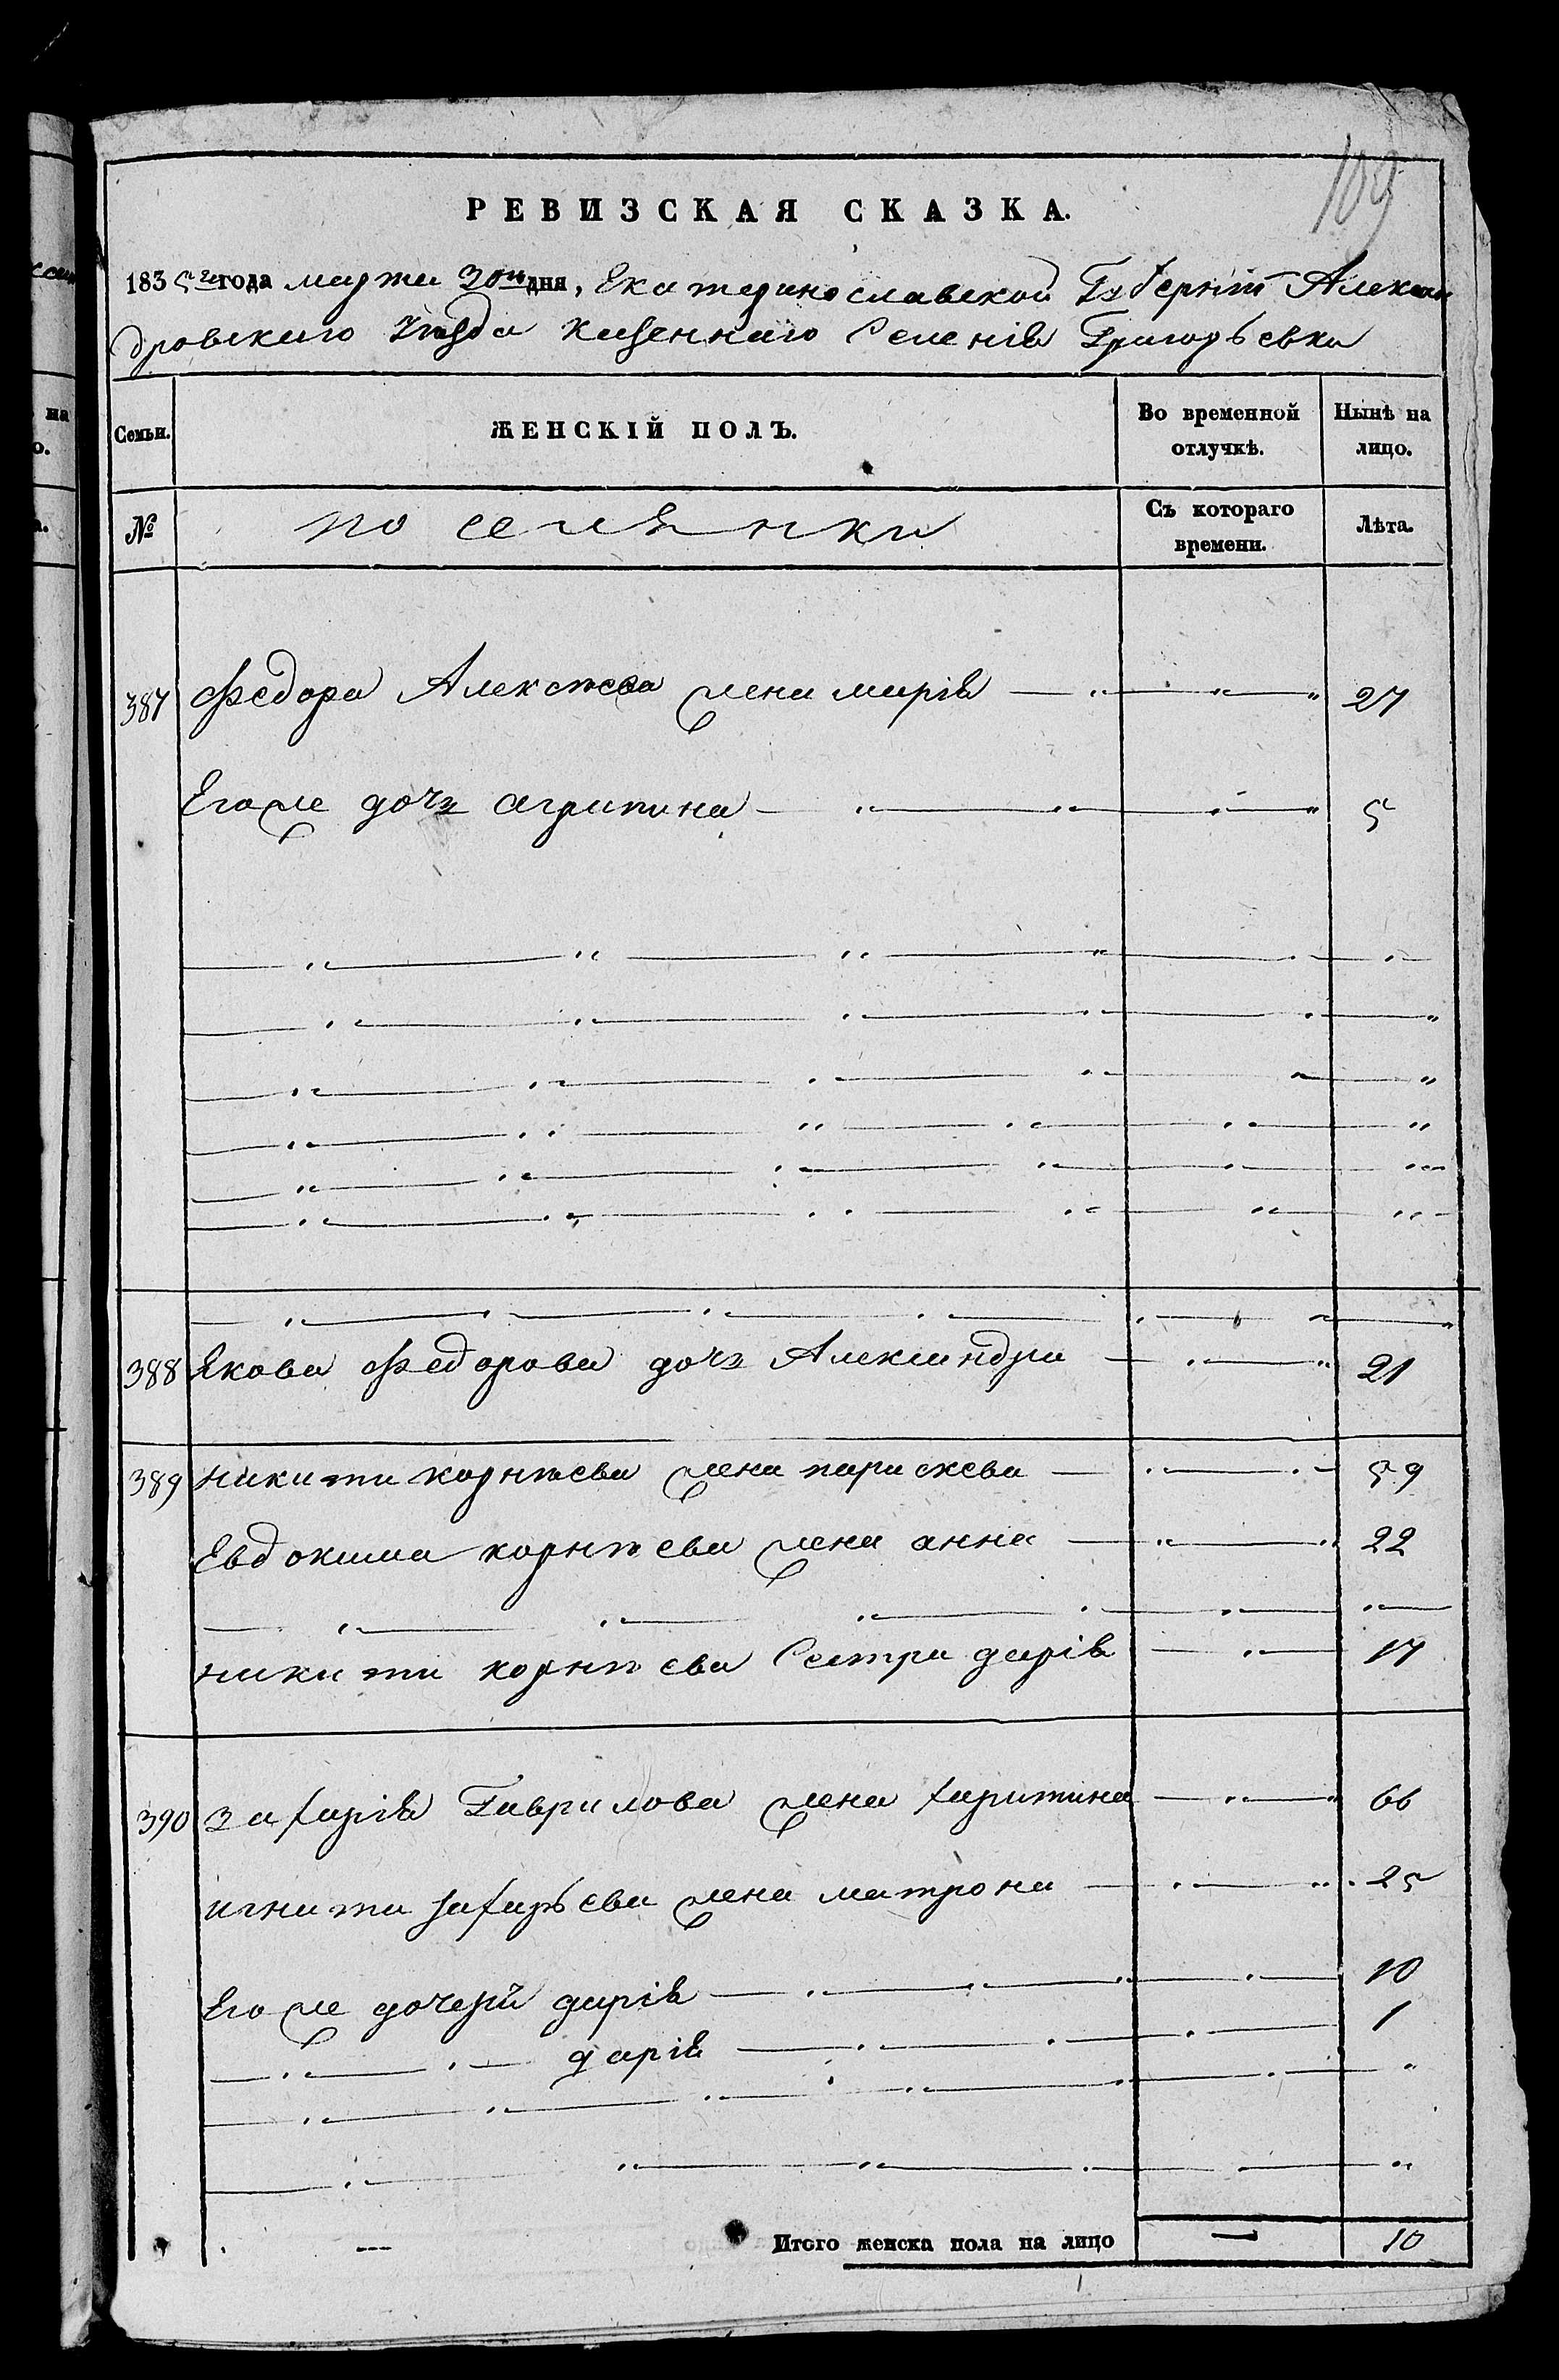 109
РЕВИЗСКАЯ СКАЗКА.
1835го года марта 30го дня, Екатеринославской Губерніи Алексан
дровскаго Уезда казеннаго Селенія Григорьевки
Семьи.
ЖЕНСКІЙ ПОЛЪ.
Во временной отлучкѣ.
Нынѣ на лицо.
№
поселянки
Съ котораго времени.
Лѣта.
387 Федора Алексѣева жена марія 27
Его же дочь агрипина 5
388 Якова Федорова дочь Александра 21
389 никиты корнѣева жена параскева 59
Евдокима корнѣева жена анна 22
никиты корнѣева Сестра дарія 17
390 захарія Гаврилова жена харитина 66
игната захарьева жена матрона 25
Его же дочерѣй дарія 10
дарія 1
Итого женска пола на лицо — 10